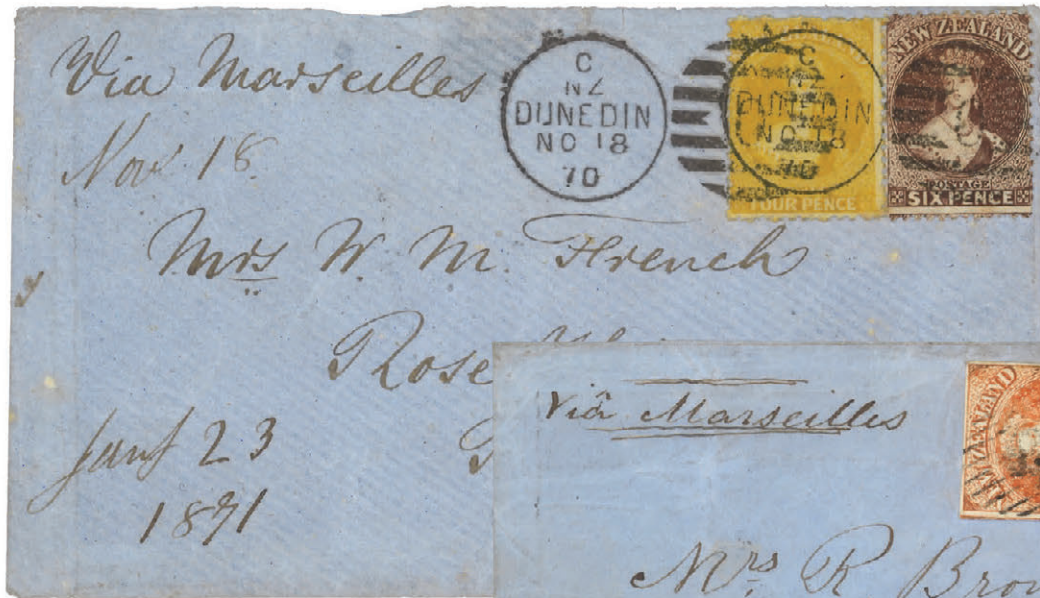 Via Marseilles
Nov. 18.
C
NZ
DUNEDIN
NO 18
70
C
NZ
DUNEDIN
NO 18
70
FOUR PENCE
NEW ZEALAND
POSTAGE
SIX PENCE
Mrs W. M. French
Rose
Jany 23
1871
Via Marseilles
NEW ZEALAND
Mrs R Brow